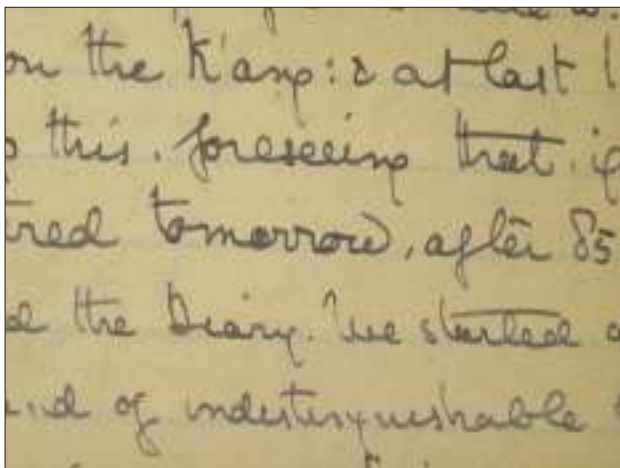 on the K'ang: & at last I
this. foreseeing that if
tired tomorrow, after 85
the Diary. We started
of indistinguishable